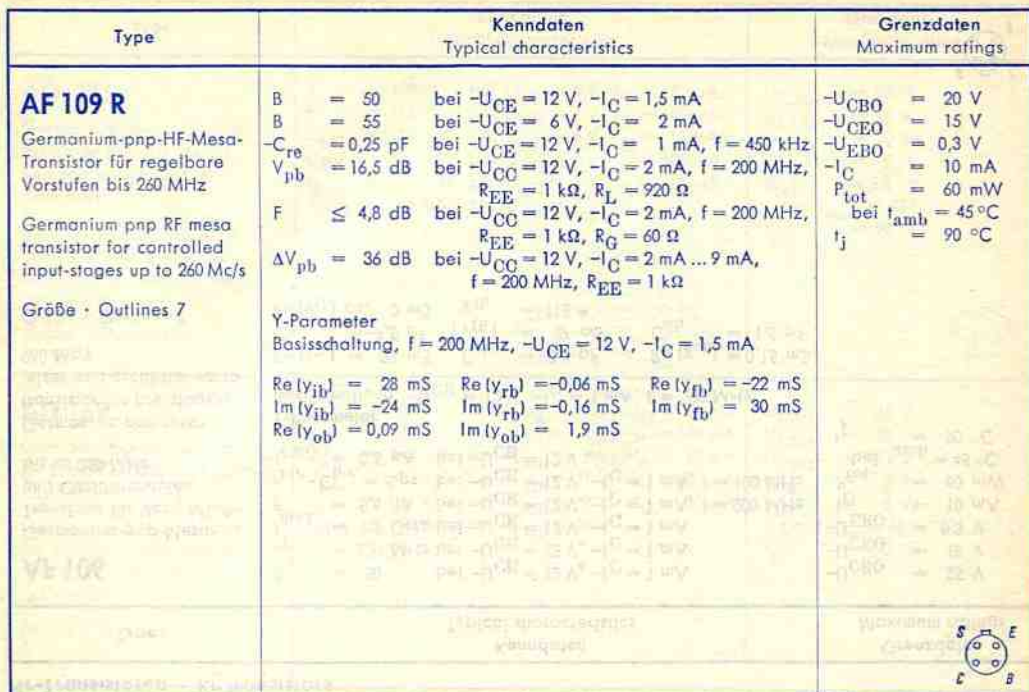 Type
Kenndaten
Typical characteristics
Grenzdaten
Maximum ratings
AF 109 R
Germanium-pnp-HF-Mesa-
Transistor für regelbare
Vorstufen bis 260 MHz
Germanium pnp RF mesa
transistor for controlled
input-stages up to 260 Mc/s
Größe · Outlines 7
B = 50 bei -U_CE = 12 V, -I_C = 1,5 mA
B = 55 bei -U_CE = 6 V, -I_C = 2 mA
-C_re = 0,25 pF bei -U_CE = 12 V, -I_C = 1 mA, f = 450 kHz
V_pb = 16,5 dB bei -U_CC = 12 V, -I_C = 2 mA, f = 200 MHz,
R_EE = 1 kΩ, R_L = 920 Ω
F ≤ 4,8 dB bei -U_CC = 12 V, -I_C = 2 mA, f = 200 MHz,
R_EE = 1 kΩ, R_G = 60 Ω
ΔV_pb = 36 dB bei -U_CC = 12 V, -I_C = 2 mA ... 9 mA,
f = 200 MHz, R_EE = 1 kΩ
Y-Parameter
Basisschaltung, f = 200 MHz, -U_CE = 12 V, -I_C = 1,5 mA
Re (y_ib) = 28 mS Re (y_rb) = -0,06 mS Re (y_fb) = -22 mS
Im (y_ib) = -24 mS Im (y_rb) = -0,16 mS Im (y_fb) = 30 mS
Re (y_ob) = 0,09 mS Im (y_ob) = 1,9 mS
-U_CBO = 20 V
-U_CEO = 15 V
-U_EBO = 0,3 V
-I_C = 10 mA
P_tot = 60 mW
bei t_amb = 45 °C
t_j = 90 °C
S E
C B